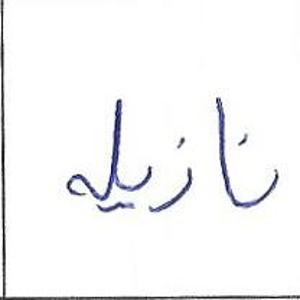 نازیله